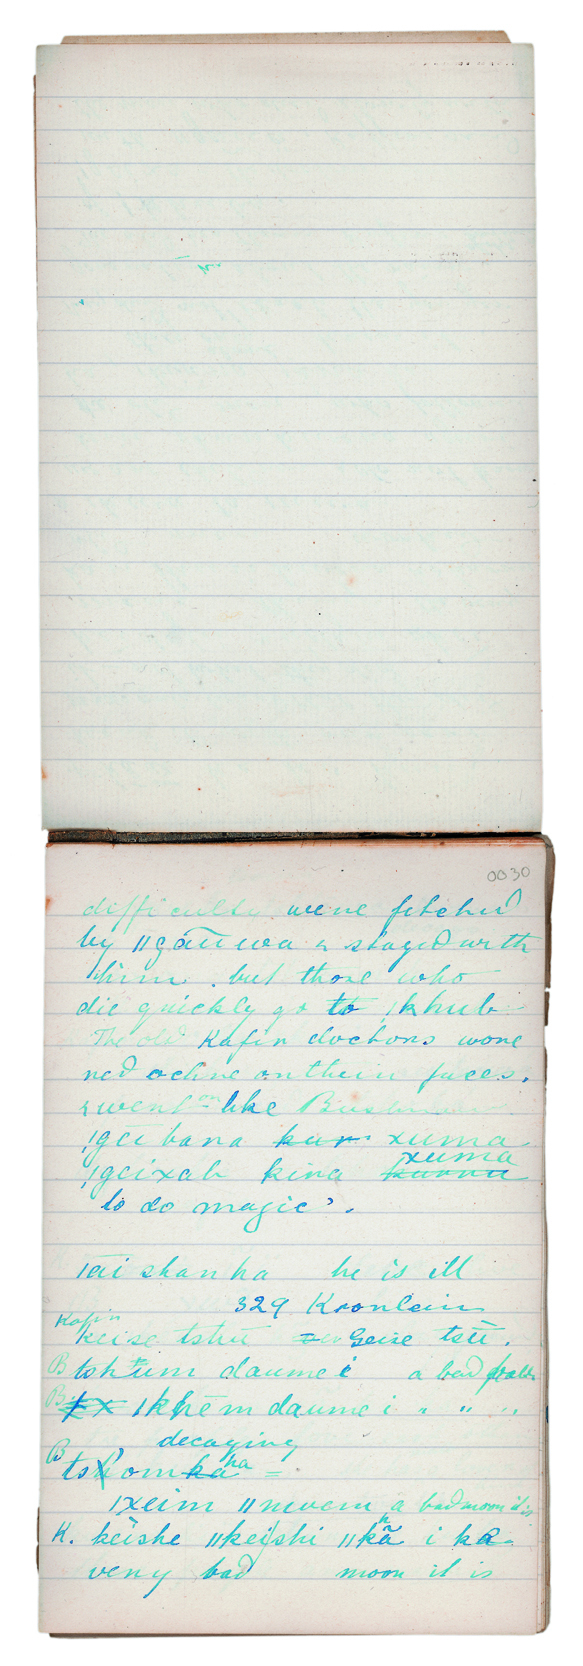 0030
difficulty were fetched
by ||gāuwa & stayed with
him. but those who
die quickly go to |khub
The old Kafin doctors wore
red ochre on their faces.
& went on like Bushmen
|gēi bana kur xuma
|geixab kina kurru xuma
to do magic'.
|āi shan ha he is ill
329 Kronlein
Kafin
keise tshū = Geise tsū.
B tshum daume i a bad
B |khēm daume i " " "
decaying
B tshom ka ha =
|xeim ||nuem a bad moon it is
K. keishe ||keishi ||khā i ka
very bad moon it is